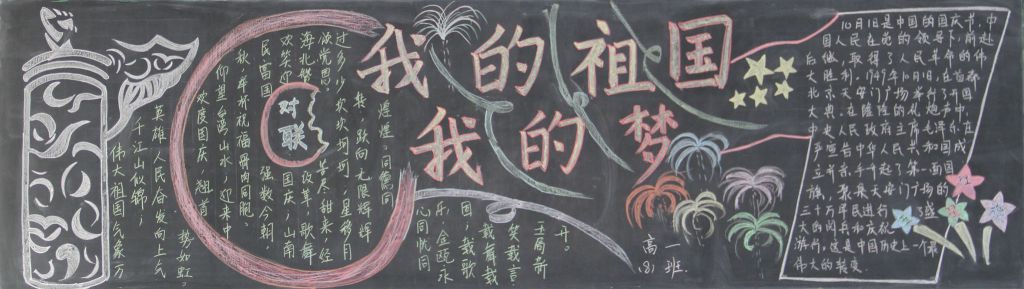 我的祖国
我的梦
对联
英雄人民奋发向上
千江山似锦，
伟大祖国气象万
势如虹。
欢度国庆，翘首
仰望万里山水
迎来中
秋，举杯祝福
骨肉同胞
民富国
强数今朝。
欢笑迎
国庆，山南
海北赞
改革，歌舞
颂党恩
苦尽甜来，
过多少坎坎坷坷，星移月
跃向无限辉
煌，同德同
心同忧同
乐，金瓯永
固，载歌
载舞载
笑载言
高一
(8)班.
10月1日是中国的国庆节，中
国人民在党的领导下，前赴
后继，取得了人民革命的伟
大胜利。1949年10月1日，在首都
北京天安门广场举行了开国
大典，在隆隆的礼炮声中，
中央人民政府主席毛泽东庄
严宣告中华人民共和国成
立，并亲手升起了第一面国
旗，聚集天安门广场的
三十万军民进行了盛
大的阅兵和庆祝
游行，这是中国历史上一个最
伟大的转变.